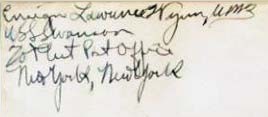 Ensign Lawrence Wynn, USNR
USS Swanson
℅ Fleet Post Office
New York, New York